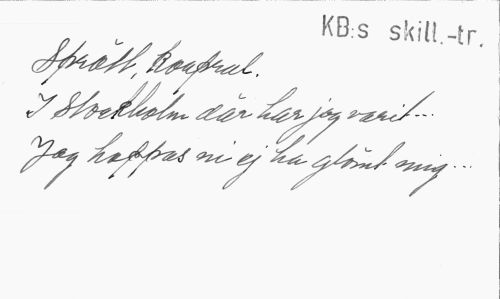 KB:s skill.-tr.
Sprätt, korpral.
I Stockholm där har jag varit...
Jag hoppas ni ej ha glömt mig...